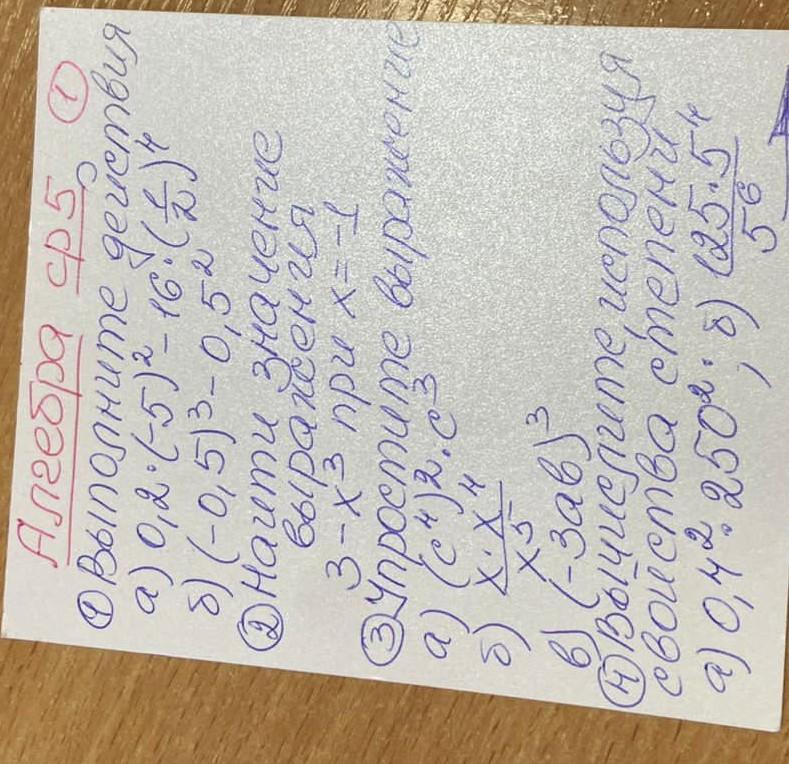 Алгебра ср5 ①
① Выполните действия
а) 0,2·(-5)²-16·(1/2)⁴
б) (-0,5)³-0,5²
② Найти значение
выражения
3-x³ при x=-1
③ Упростите выражение
а) (c⁴)²·c³
б) x·x⁴/x⁵
в) (-3ав)³
④ Вычислите, используя
свойства степени
а) 0,4²·250²; б) 125·5⁴/5⁶